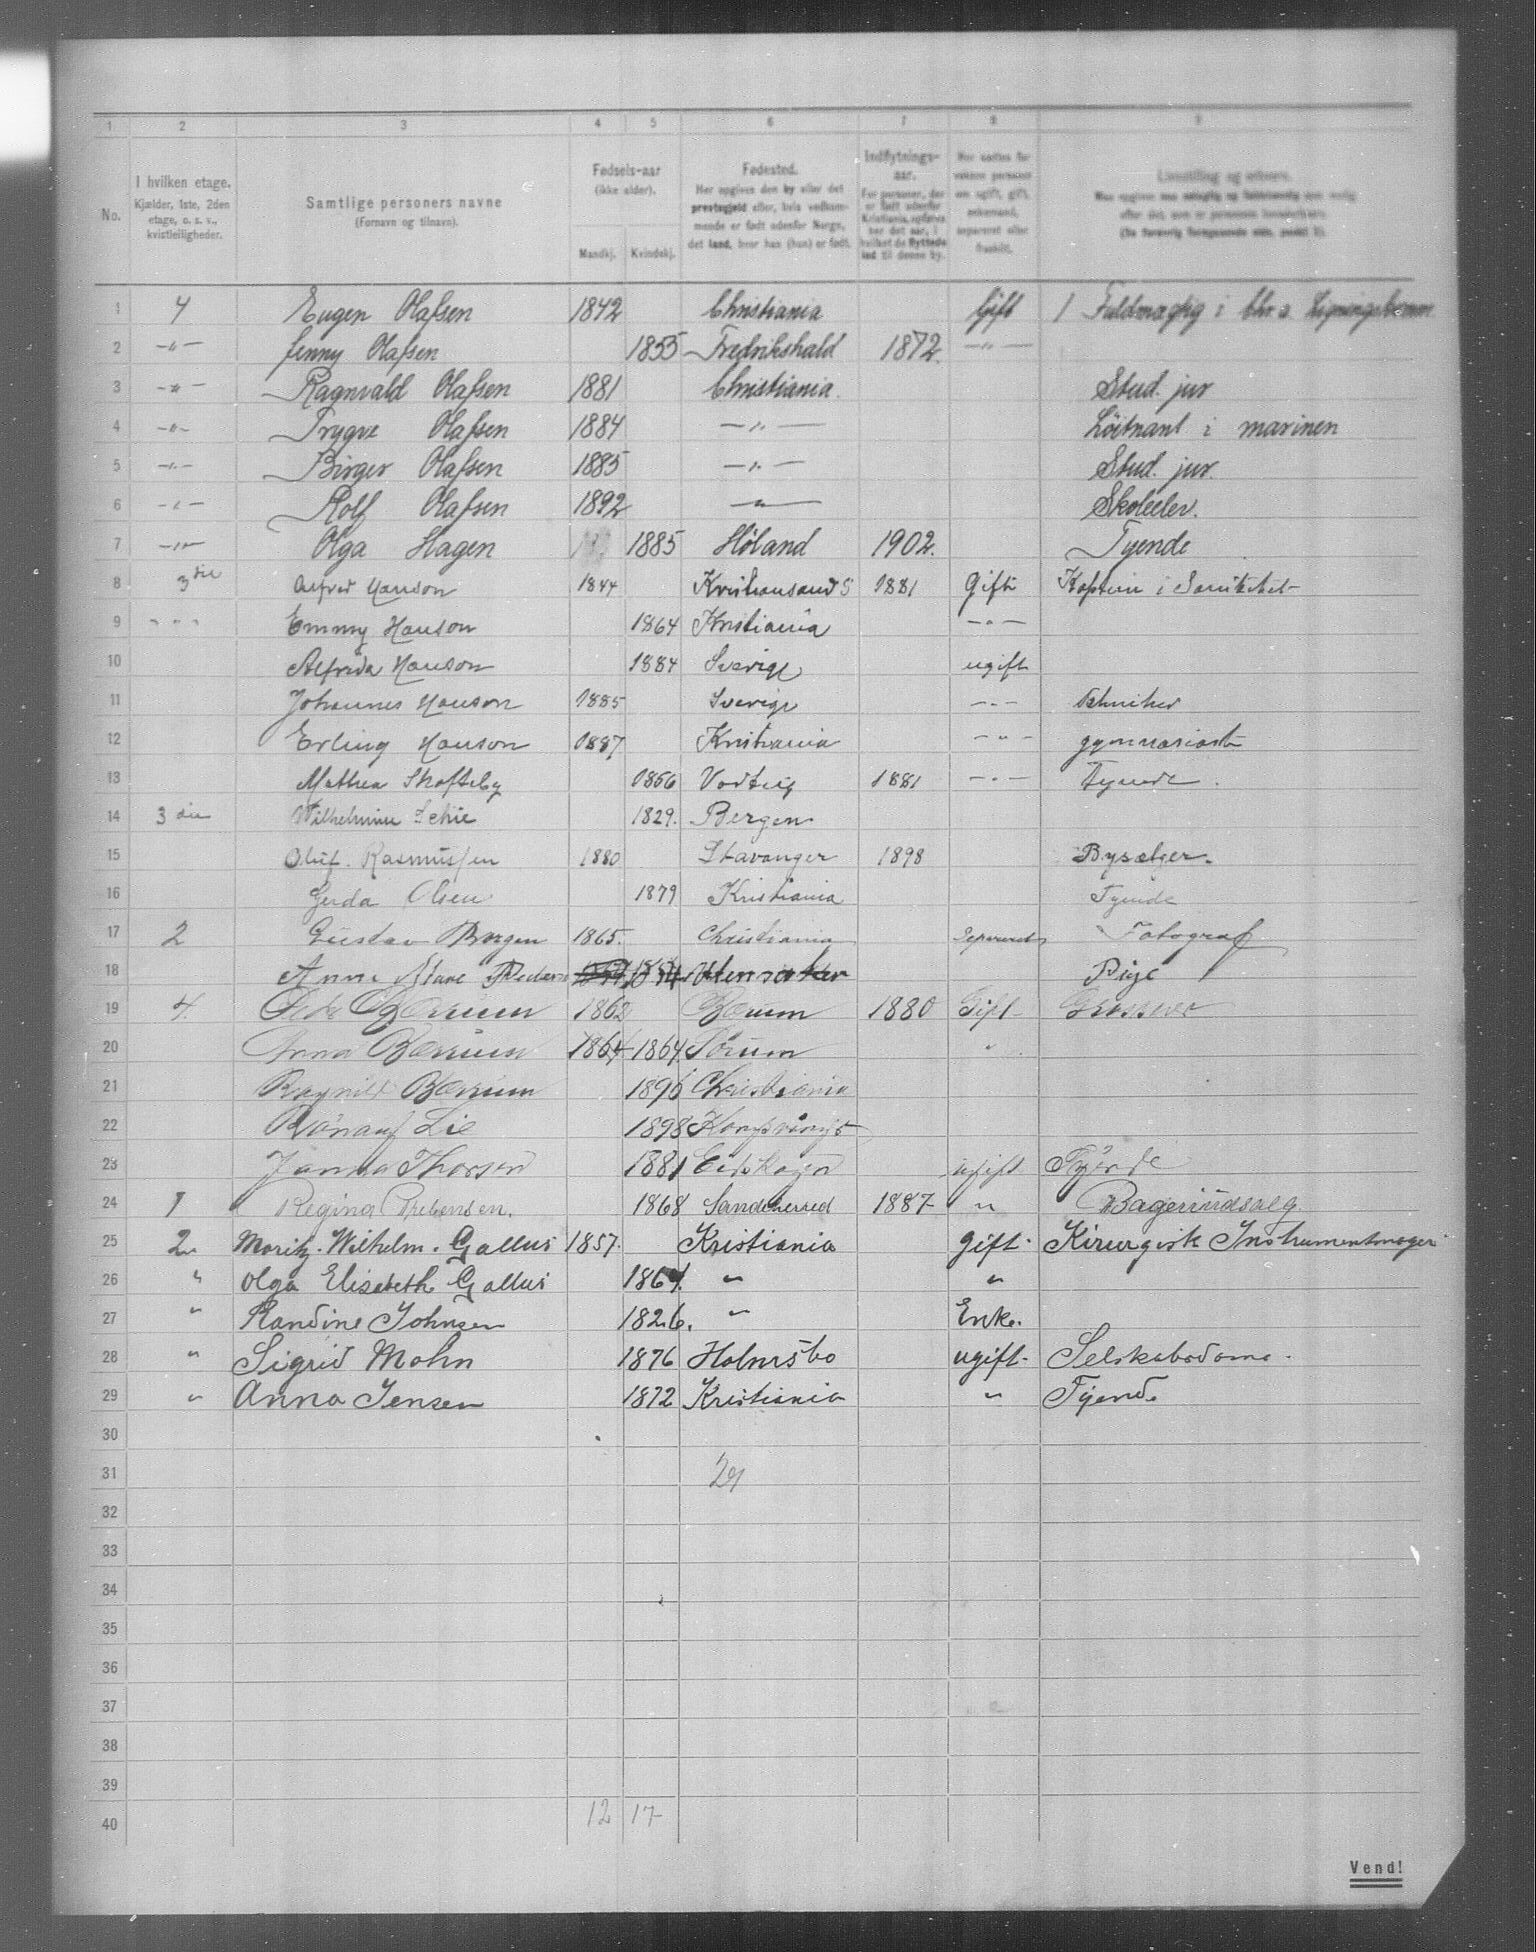 1 2 3 4 5 6 7 8 9
No.
I hvilken etage.
Kjælder, 1ste, 2den
etage, o. s. v.,
kvistleiligheder.
Samtlige personers navne
(Fornavn og tilnavn).
Fødsels-aar
(ikke alder).
Mandkj. Kvindekj.
Fødested.
Her opgives den by eller det
prestegjeld eller, hvis vedkom-
mende er født udenfor Norge,
det land, hvor han (hun) er født.
Indflytnings-
aar.
For personer, der
er født udenfor
Kristiania, opføres
her det aar, i
hvilket de flyttede
ind til denne by.
Livsstilling og erhverv.
1 4 Eugen Olafsen 1842 Christiania Gift 1 Fuldmægtig i Chr.a Ligningskomm
2 -"- Jenny Olafsen 1855 Fredrikshald 1872. -"-
3 -"- Ragnvald Olafsen 1881 Christiania. Stud. jur
4 -"- Trygve Olafsen 1884 -"- Løitnant i marinen
5 -"- Birger Olafsen 1885 -"- Stud. jur.
6 -"- Rolf Olafsen 1892 -"- Skoleelev.
7 -"- Olga Hagen 1885 Høland 1902. Tyende
8 3die Alfred Hanson 1844 Kristiansand S 1881 Gift Kaptein i Sanitetet
9 " " " Emmy Hanson 1864 Kristiania -"-
10 Alfrida Hanson 1884 Sverige ugift
11 Johannes Hanson 1885 Sverige -"- Tekniker
12 Erling Hanson 1887 Kristiania -"- gymnasiast
13 Mathea Skofteby 1866 1881 -"- Tyende.
14 3die Wilhelmine Schie 1829. Bergen
15 Oluf. Rasmussen 1880 Stavanger 1898 Bysælger.
16 Gerda Olsen 1879 Kristiania Tyende
17 2 Gustav Borgen 1865. Christiania Separeret Fotograf
18 Anne Pige
19 4. Bærum 1862 Bærum 1880 Gift Grosserer
20 Anna Bærum 1864 1864. Sørum "
21 Ragnild Bærum 1896 Christiania
22 Rønaug Lie 1898 Kongsvinger
23 Janna Thorsen 1881 Eidskogen ugift Tyende
24 1 Regina Prebensen. 1868 Sandeherred 1887 " Bageriudsalg.
25 2. Moritz. Wilhelm. Gallus 1857. Kristiania gift. Kirurgisk Instrumentmager
26 " Olga Elisabeth Gallus 1864. " "
27 " Randine Johnsen 1826. " Enke.
28 " Sigrid Mohn 1876 Holmsbo ugift. Selskabsdame.
29 " Anna Jensen 1872 Kristiania " Tyende
30
31 29
32
33
34
35
36
37
38
39
40 12 17
Vend!